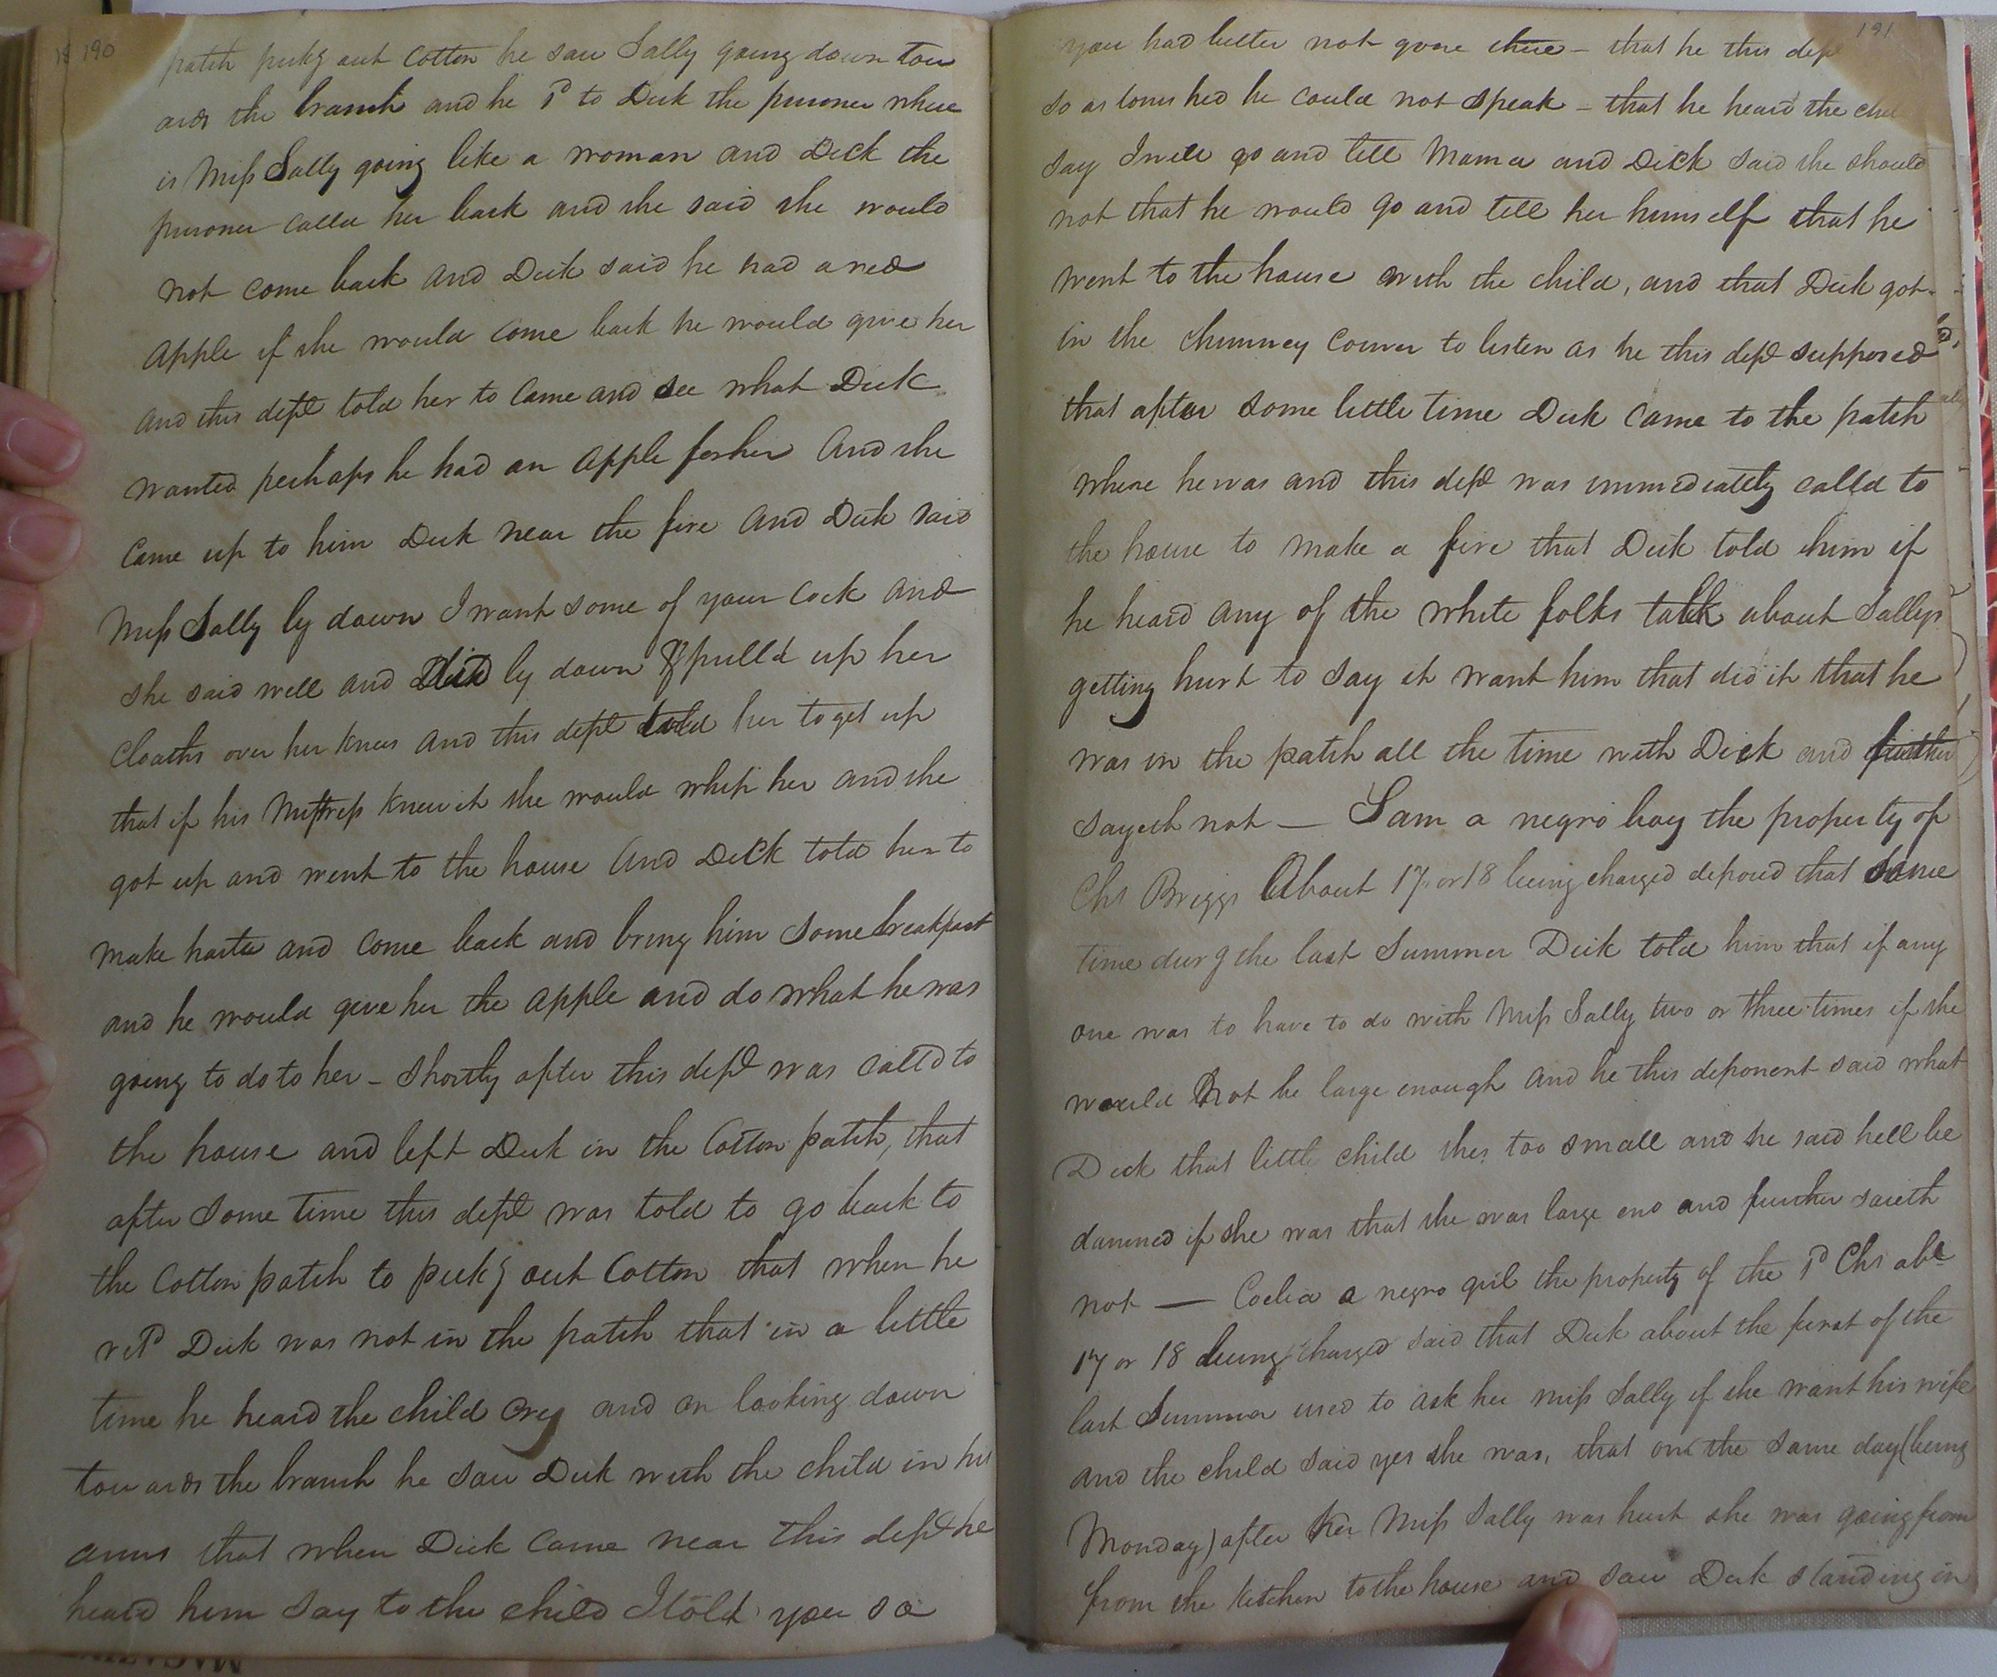 190
patch pickg out Cotton he saw Sally going down tow
ards the branch and he sd to Dick the prisoner where
is Miss Sally going like a woman and Dick the
prisoner calld her back and she said she would
not come back and Dick said he had a red
apple if she would come back he would give her
and this dept told her to come and see what Dick
wanted perhaps he had an apple for her and she
Came up to him Dick near the fire and Dick said
Miss Sally ly down I want some of your cock and
she said well and did ly down & pulld up her
Cloaths over her knees and this dept told her to get up
that if his Mistress knew it she would whip her and she
got up and went to the house and Dick told her to
make haste and come back and bring him some breakfast
and he would give her the apple and do what he was
going to do to her - Shortly after this dept was called to
the house and left Dick in the Cotton patch, that
after some time this dept was told to go back to
the Cotton patch to pickg out Cotton that when he
retd Dick was not in the patch that in a little
time he heard the child cry and on looking down
towards the branch he saw Dick with the child in his
arms that when Dick came near this dept he
heard him say to the child I told you so
191
you had better not gone there - that he this dept
so astonished he could not speak - that he heard the
say I will go and tell Mama and Dick said she should
not that he would go and tell her himself that he
went to the house with the child, and that Dick got
in the chimney corner to listen as he this dept supposed
that after some little time Dick came to the patch
where he was and this dept was immediately called to
the house to make a fire that Dick told him if
he heard any of the white folks talk about Sallys
getting hurt to say it want him that did it that he
was in the patch all the time with Dick and further
sayeth not — Sam a negro boy the property of
Chs Briggs About 17 or 18 being charged deposed that some
time durg the last Summer Dick told him that if any
one was to have to do with Miss Sally two or three times if she
would not be large enough and he this deponent said what
Dick that little child shes too small and he said hell be
damned if she was that she was large eno and further saieth
not — Coelia a negro girl the property of the sd Chs abt
17 or 18 being charged said that Dick about the first of the
last Summer used to ask her Miss Sally if she want his wife
and the child said yes she was, that on the same day (being
Monday) after her Miss Sally was hurt she was going from
from the kitchen to the house and saw Dick standing in